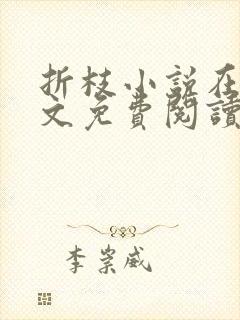 折枝小说在
文免費閱讀
李崇威